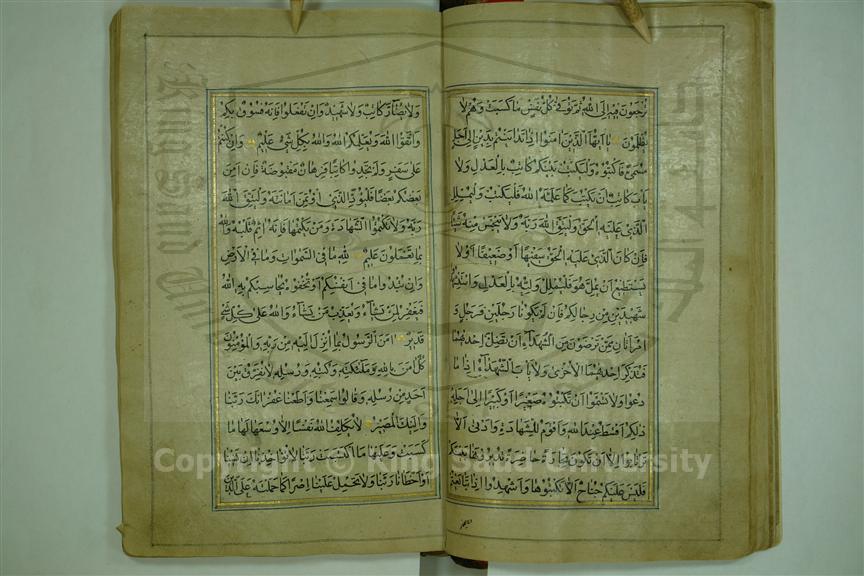 ترجعون فيه الى الله ثم توفى كل نفس ما كسبت وهم لا
يظلمون يا ايها الذين امنوا اذا تداينتم بدين الى اجل
مسمى فاكتبوه وليكتب بينكم كاتب بالعدل ولا
ياب كاتب ان يكتب كما علمه الله فليكتب وليملل
الذى عليه الحق وليتق الله ربه ولا يبخس منه شيئا
فان كان الذى عليه الحق سفيها او ضعيفا او لا
يستطيع ان يمل هو فليملل وليه بالعدل واستشهدوا
شهيدين من رجالكم فان لم يكونا رجلين فرجل و
امراتان ممن ترضون من الشهداء ان تضل احديهما
فتذكر احديهما الاخرى ولا ياب الشهداء اذا ما
دعوا ولا تسموا ان تكتبوه صغيرا او كبيرا الى اجله
ذلكم اقسط عند الله واقوم للشهادة وادنى الا
ترتابوا الا ان تكون تجارة حاضرة تديرونها بينكم
فليس عليكم جناح الا تكتبوها واشهدوا اذا تبايعتم
ولا يضار كاتب ولا شهيد وان تفعلوا فانه فسوق بكم
واتقوا الله ويعلمكم الله والله بكل شىء عليم وان كنتم
على سفر ولم تجدوا كاتبا فرهان مقبوضة فان امن
بعضكم بعضا فليؤد الذى اؤتمن امانته وليتق الله
ربه ولا تكتموا الشهادة ومن يكتمها فانه اثم قلبه والله
بما تعملون عليم لله ما فى السموات وما فى الارض
وان تبدوا ما فى انفسكم او تخفوه يحاسبكم به الله
فيغفر لمن يشاء ويعذب من يشاء والله على كل شىء
قدير امن الرسول بما انزل اليه من ربه والمؤمنون
كل امن بالله وملئكته وكتبه ورسله لا نفرق بين
احد من رسله وقالوا سمعنا واطعنا غفرانك ربنا
واليك المصير لا يكلف الله نفسا الا وسعها لها ما
كسبت وعليها ما اكتسبت ربنا لا تؤاخذنا ان نسينا
او اخطانا ربنا ولا تحمل علينا اصرا كما حملته على الذين
Copyright © King Saud University